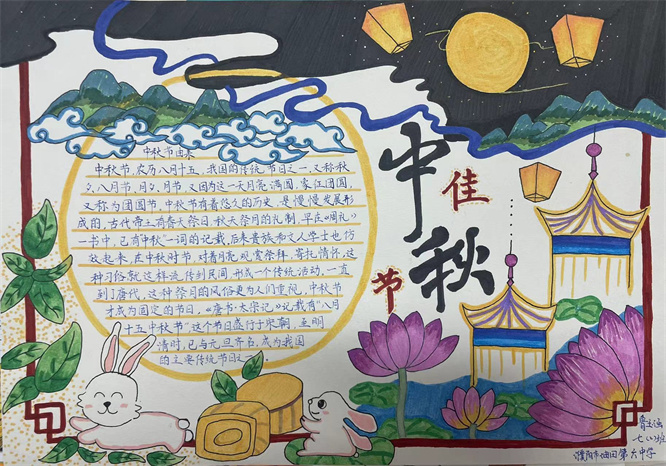 中秋佳节
中秋节由来
中秋节,农历八月十五,我国的传统节日之一,又称秋
夕、八月节、月夕、月节,又因为这一天月亮满圆,象征团圆,
又称为团圆节.中秋节有着悠久的历史,是慢慢发展形
成的,古代帝王有春天祭日,秋天祭月的礼制,早在《周礼》
一书中,已有"中秋"一词的记载,后来贵族和文人学士也仿
效起来,在中秋时节,对着月亮观赏祭拜,寄托情怀,这
种习俗就这样流传到民间,形成一个传统活动,一直
到了唐代,这种祭月的风俗更为人们重视,中秋节
才成为固定的节日,《唐书·太宗记》记载有"八月
十五中秋节"这个节日盛行于宋朝,至明
清时,已与元旦齐名,成为我国
的主要传统节日之一.
七(1)班
濮阳市油田第六中学